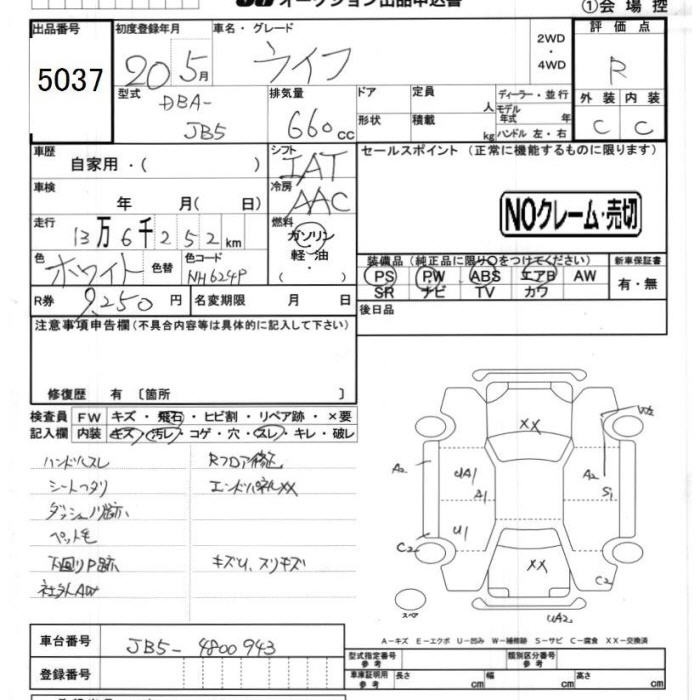 オークション出品申込書
①会場控
出品番号 5037
初度登録年月 20 5月
車名・グレード ライフ
2WD ・ 4WD
評価点 R
外装 C 内装 C
型式 DBA- JB5
排気量 660 cc
ドア 形状
定員 人 積載 kg
ディーラー・並行
モデル年式 年
ハンドル 左・右
車歴 自家用・( )
シフト IAT
セールスポイント (正常に機能するものに限ります)
車検 年 月( 日)
冷房 AAC
NOクレーム・売切
走行 13万6千252km
燃料 ガソリン・軽・油・( )
色 ホワイト 色替
色コード NH624P
装備品 (純正品に限り○をつけてください)
新車保証書 有・無
PS PW ABS エアB AW
SR ナビ TV カワ
R券 9,250円
名変期限 月 日
後日品
注意事項申告欄(不具合内容等は具体的に記入して下さい)
修復歴 有〔箇所 〕
検査員記入欄
FW キズ・飛石・ヒビ割・リペア跡・×要
内装 キズ・汚レ・コゲ・穴・スレ・キレ・破レ
ハンドルスレ
Rフロア修正
シートヘタリ
エンドパネルXX
ダッシュノリ跡
ペット毛
下回りP跡
キズU、スリキズ
社外AW
XX
W2
A2
UA1
A1
A2
S1
U1
C2
XX
C2
スペア
UA2
A-キズ E-エクボ U-凹み W-補修跡 S-サビ C-腐食 XX-交換済
車台番号 JB5-4800943
登録番号
型式指定番号 参考
類別区分番号 参考
車庫証明用 参考
長さ cm 幅 cm 高さ cm